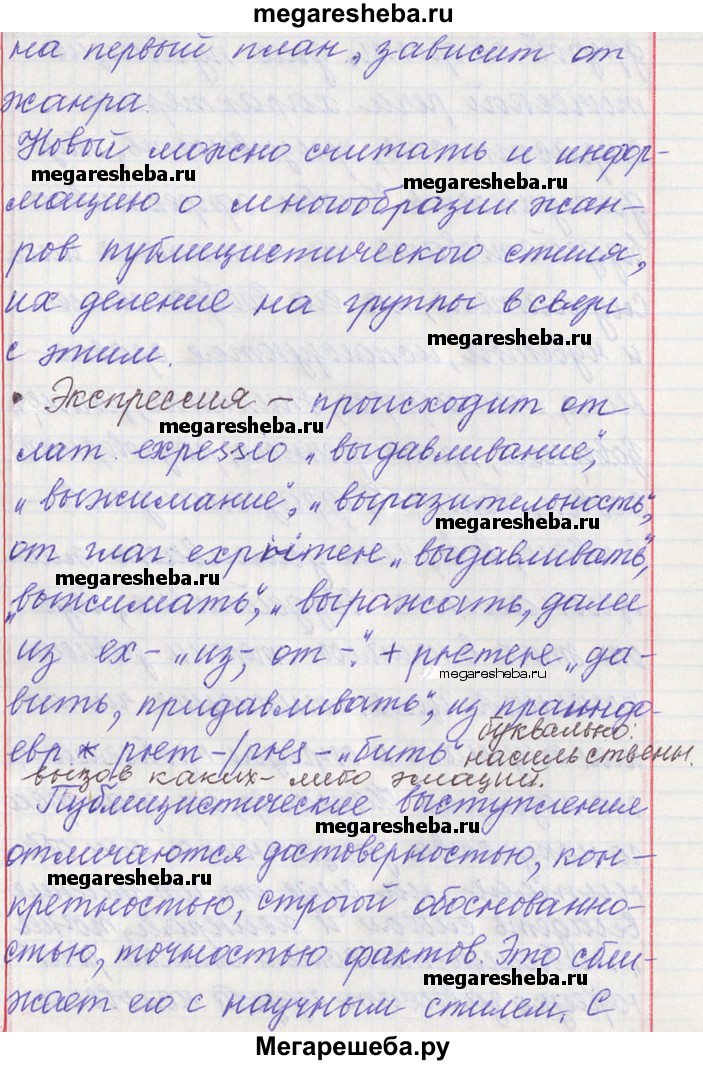 megaresheba.ru
на первый план, зависит от
жанра.
Новый можно считать и инфор-
megaresheba.ru
megaresheba.ru
мацию о многообразии жан-
ров публицистического стиля,
их деление на группы в связи
megaresheba.ru
с этим.
• Экспрессия – происходит от
megaresheba.ru
лат. expessio „выдавливание",
„выжимание", „выразительность",
megaresheba.ru
от глаг. „выдавливать",
megaresheba.ru
„выжимать", „выражать, далее
из ex- „из-, от-." + „да-
megaresheba.ru
вить, придавливать", из праиндо-
буквально:
евр. * „бить" насильственн.
вызов каких-либо эмоций.
Публицистические выступления
megaresheba.ru
отличаются достоверностью, кон-
megaresheba.ru
кретностью, строгой обоснованно-
стью, точностью фактов. Это сбли-
megaresheba.ru
жает его с научным стилем. С
Мегарешеба.ру